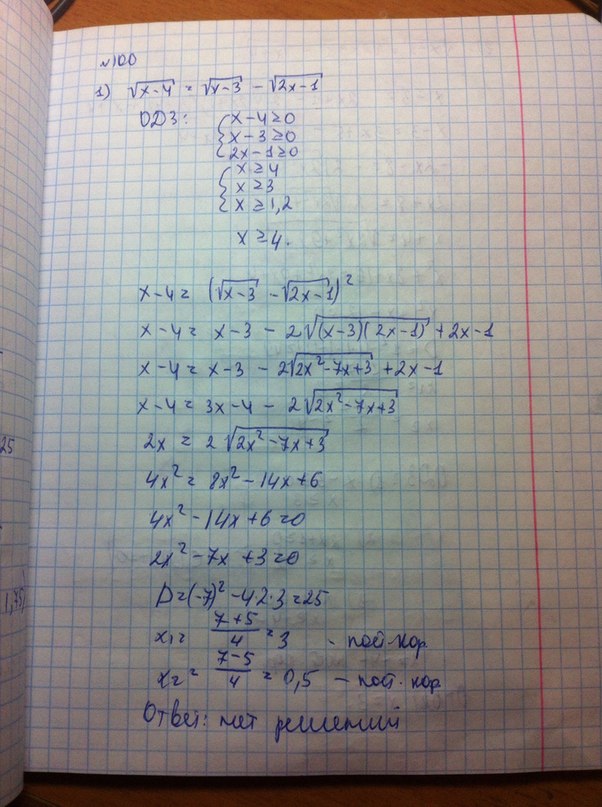 №100
1) √(x-4) = √(x-3) - √(2x-1)
ОДЗ: { x-4≥0
x-3≥0
2x-1≥0
{ x≥4
x≥3
x≥1,2
x≥4.
x-4 = (√(x-3) - √(2x-1))²
x-4 = x-3 - 2√((x-3)(2x-1)) + 2x-1
x-4 = x-3 - 2√(2x²-7x+3) + 2x-1
x-4 = 3x-4 - 2√(2x²-7x+3)
2x = 2√(2x²-7x+3)
4x² = 8x² - 14x+6
4x² - 14x+6=0
2x² - 7x +3=0
D=(-7)² - 4·2·3=25
x₁= (7+5)/4 = 3 - пост. кор.
x₂= (7-5)/4 = 0,5 - пост. кор.
Ответ: нет решений
25
1,75